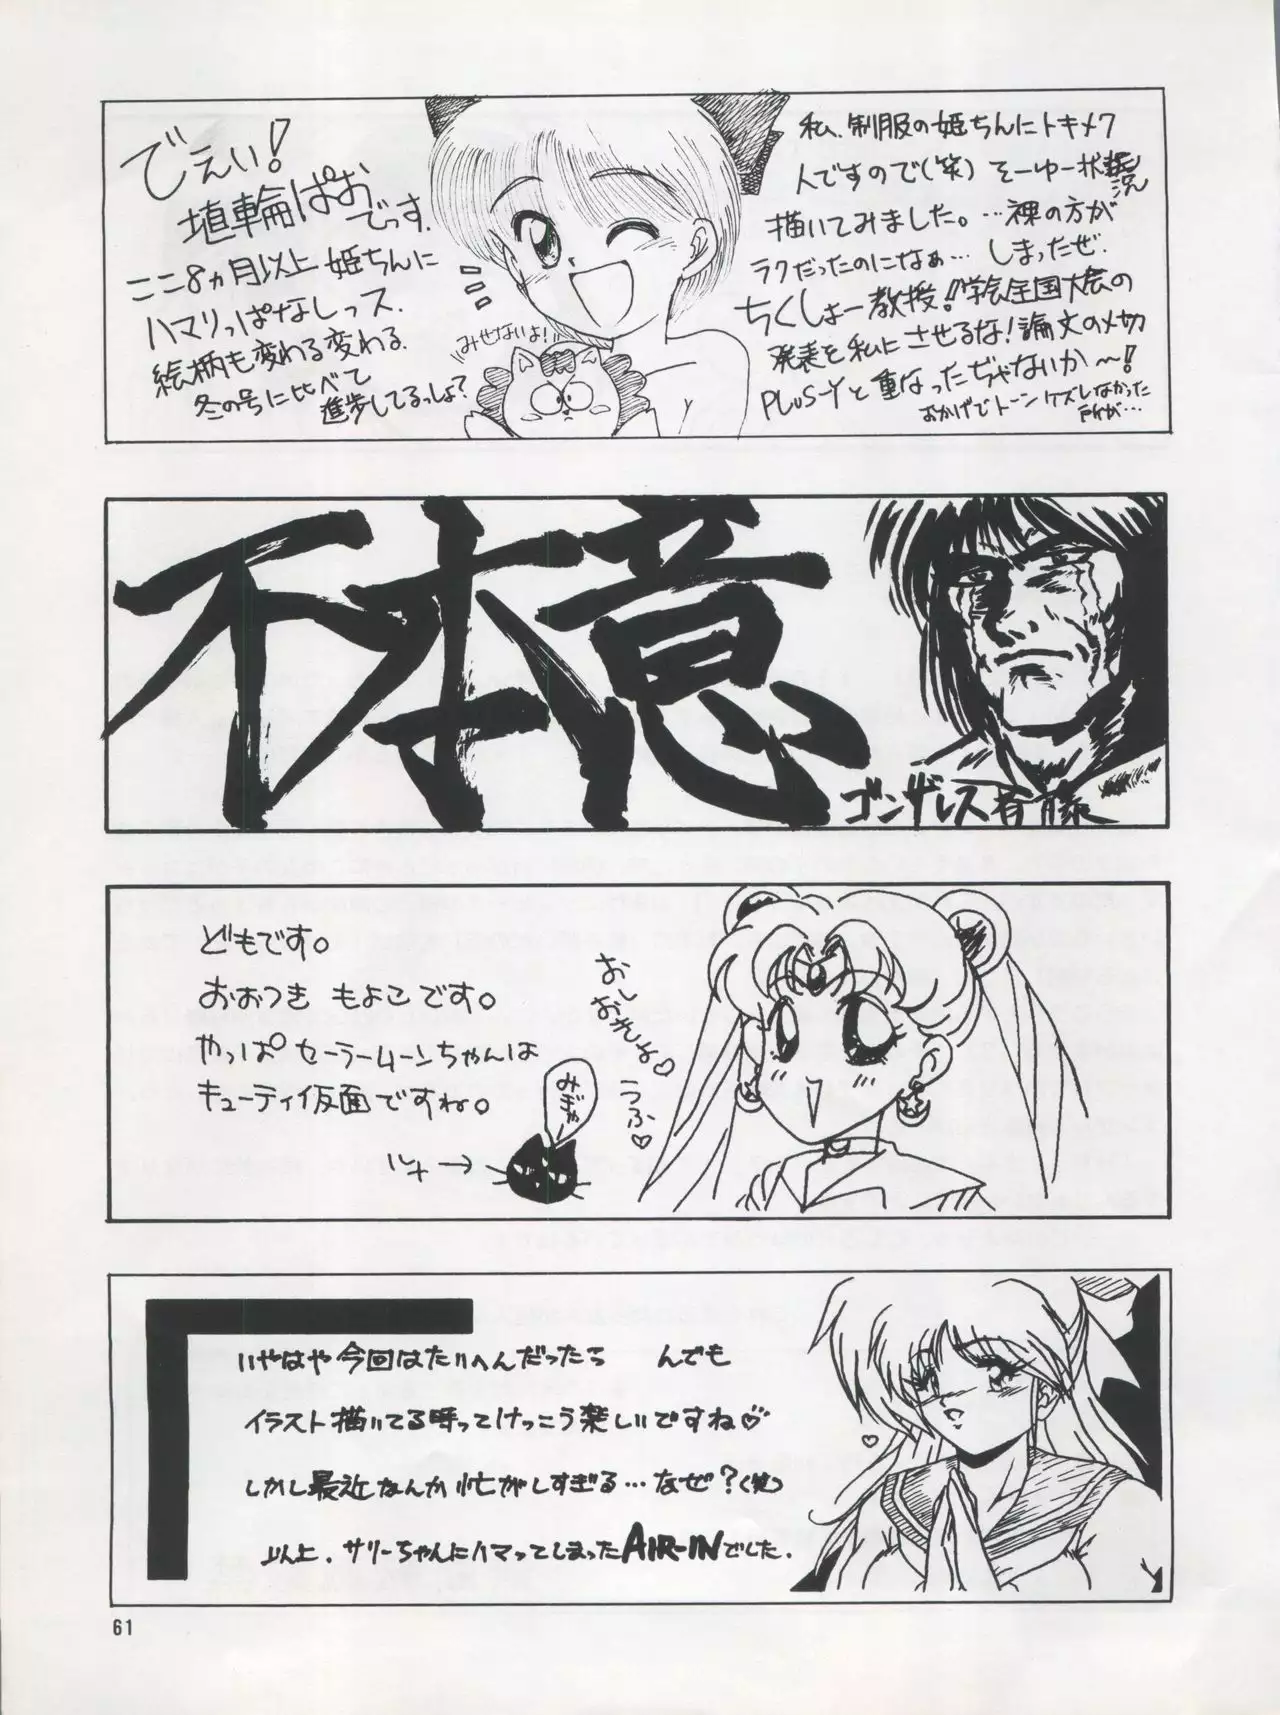 でぇい!
埴輪ぱお
でっす.
ここ8ヵ月以上姫ちんに
ハマりっぱなしっス.
絵柄も変わる変わる.
冬の号に比べて
進歩してるっしょ?
みせないよ!
私、制服の姫ちんにトキメク
人ですので(笑) そーゆー状況
描いてみました。…裸の方が
ラクだったのになぁ… しまったぜ.
ちくしょー教授!!学会全国大会の
発表を私にさせるな!論文の〆切
PLUS-Yと重なったぢゃないか〜!
おかげでトーンケズレなかった
所が…
不本意
ゴンザレス斉藤
どもです。
おおつき もよこです。
やっぱセーラームーンちゃんは
キューティ仮面ですね。
ルナ→
みぎゃー
おし
おきよ♡
うふ♡
いやはや今回はたいへんだったら んでも
イラスト描いてる時ってけっこう楽しいですね♡
しかし最近なんか忙がしすぎる…なぜ?(笑)
以上. サリーちゃんにハマってしまったAIR-INでした.
61